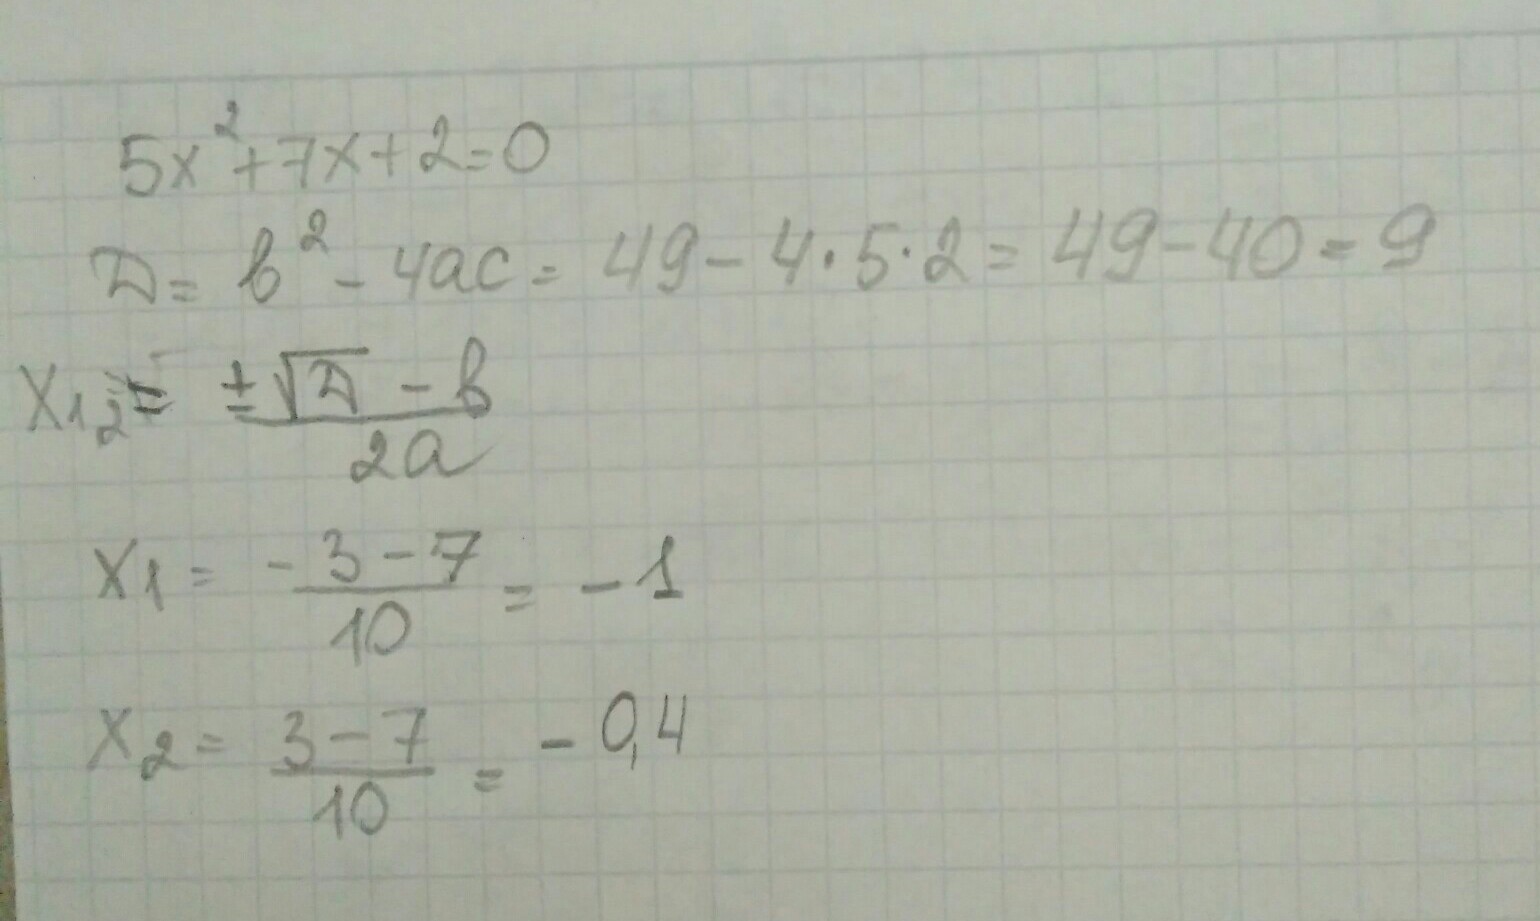 5x²+7x+2=0
D= b²-4ac= 49-4·5·2= 49-40=9
x₁,₂= (±√D -b)/2a
x₁= (-3-7)/10 = -1
x₂= (3-7)/10 = -0,4